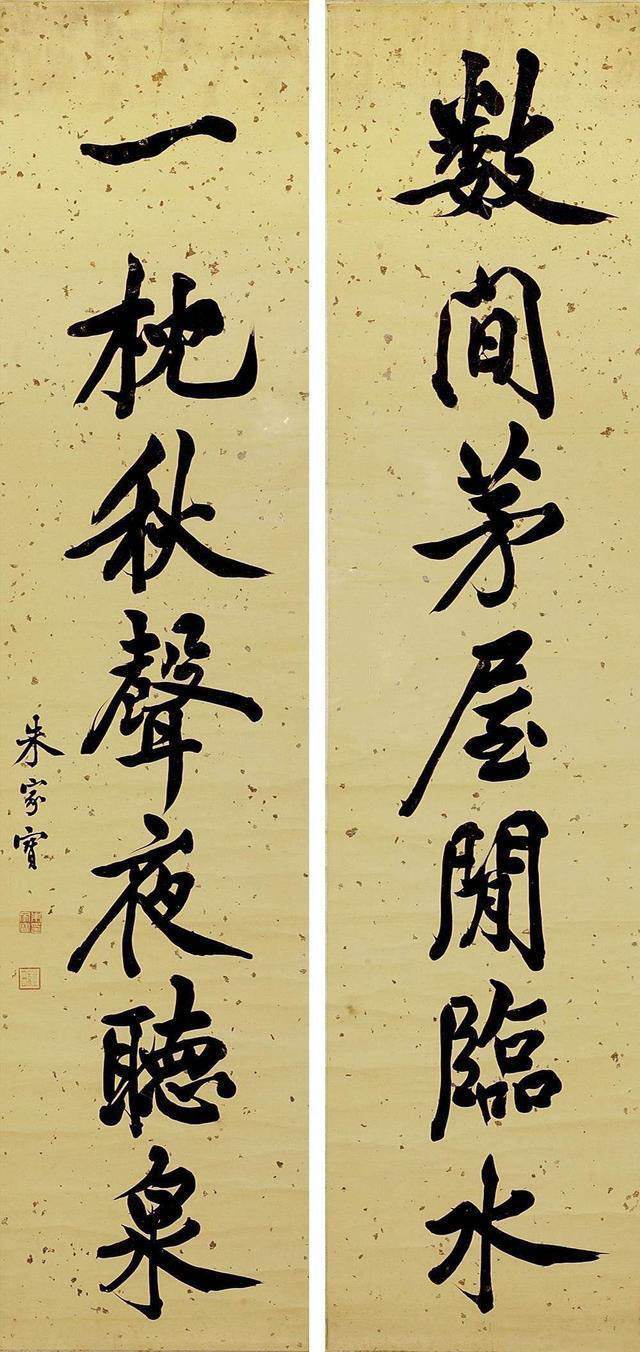 數間茅屋閒臨水
一枕秋聲夜聽泉
朱家寶